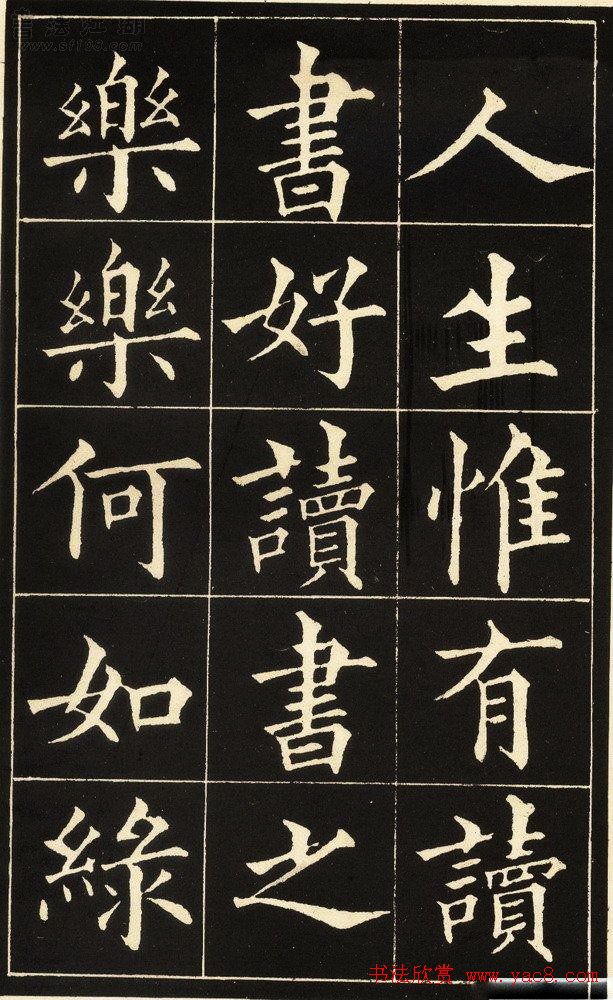 人生惟有讀
書好讀書之
樂樂何如綠
书法江湖
www.sf108.com
书法欣赏 www.yac8.com